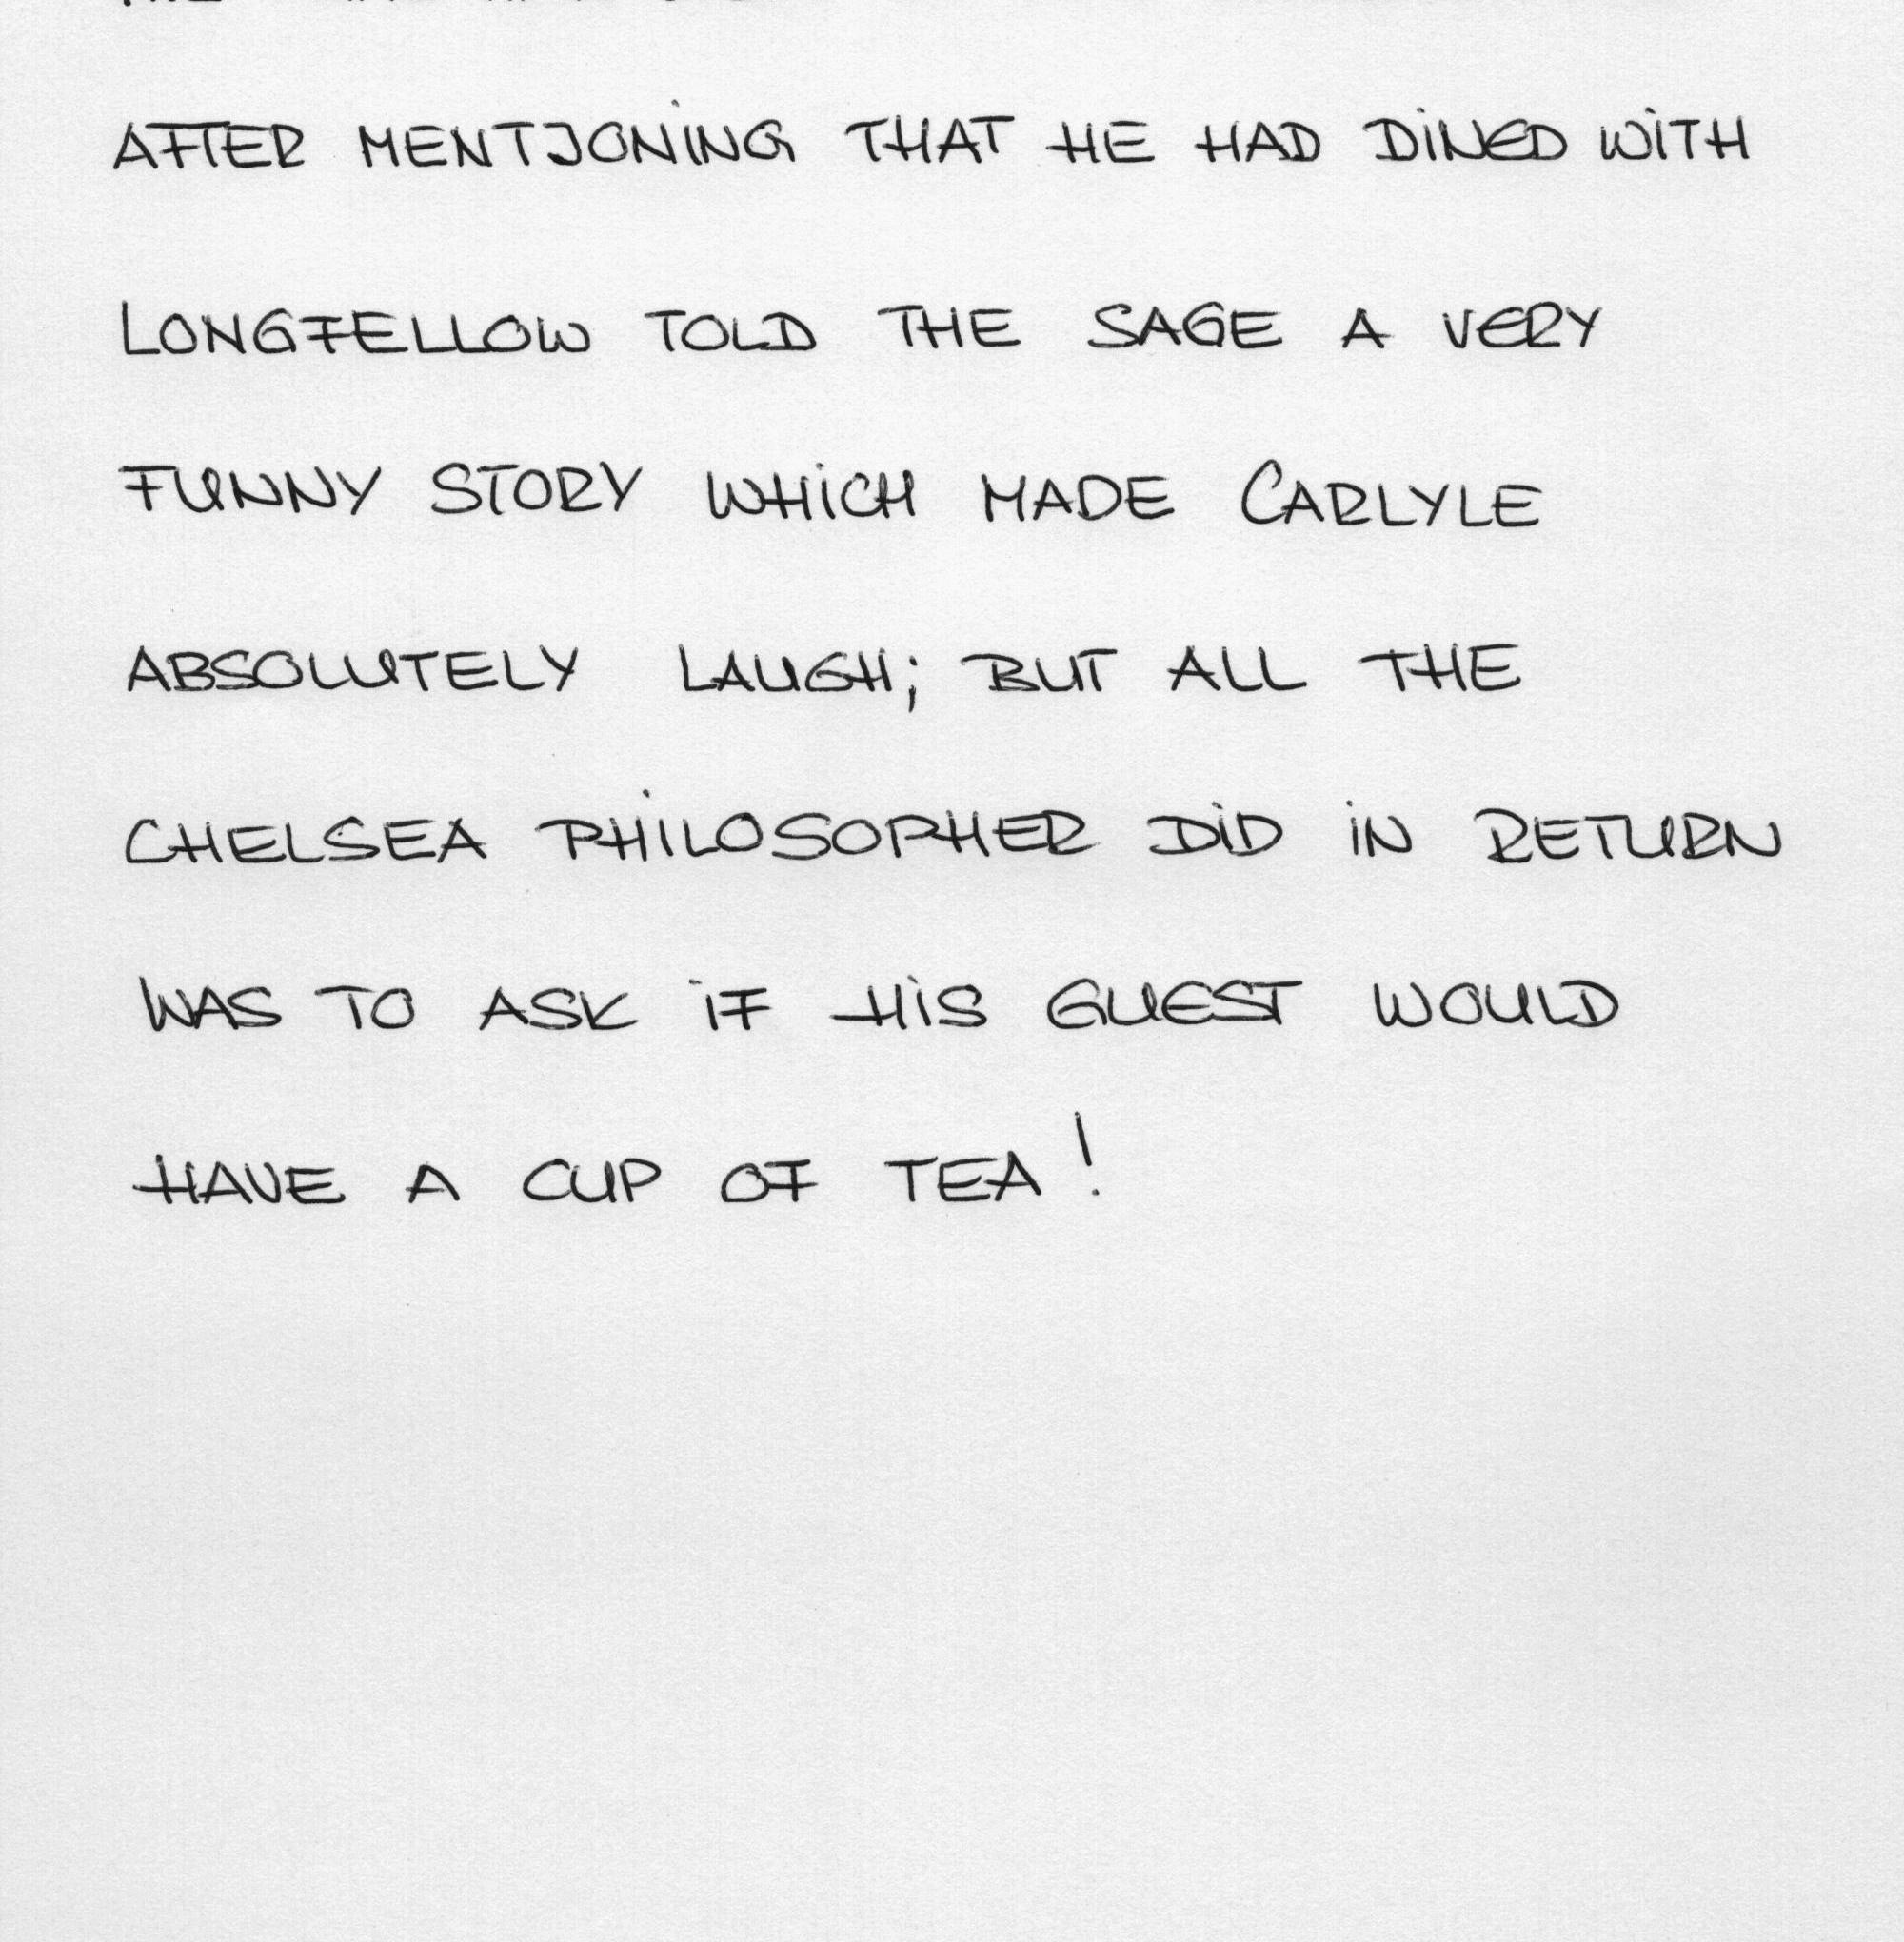 AFTER MENTJONiNG THAT HE HAD DiNED WiTH
LONGFELLOW TOLD THE SAGE A VERY
FUNNY STORY WHiCH MADE CARLYLE
ABSOLUTELY LAUGH; BUT ALL THE
CHELSEA PHiLOSOPHER DiD iN RETURN
WAS TO ASK iF HiS GUEST WOULD
HAVE A CUP OF TEA!